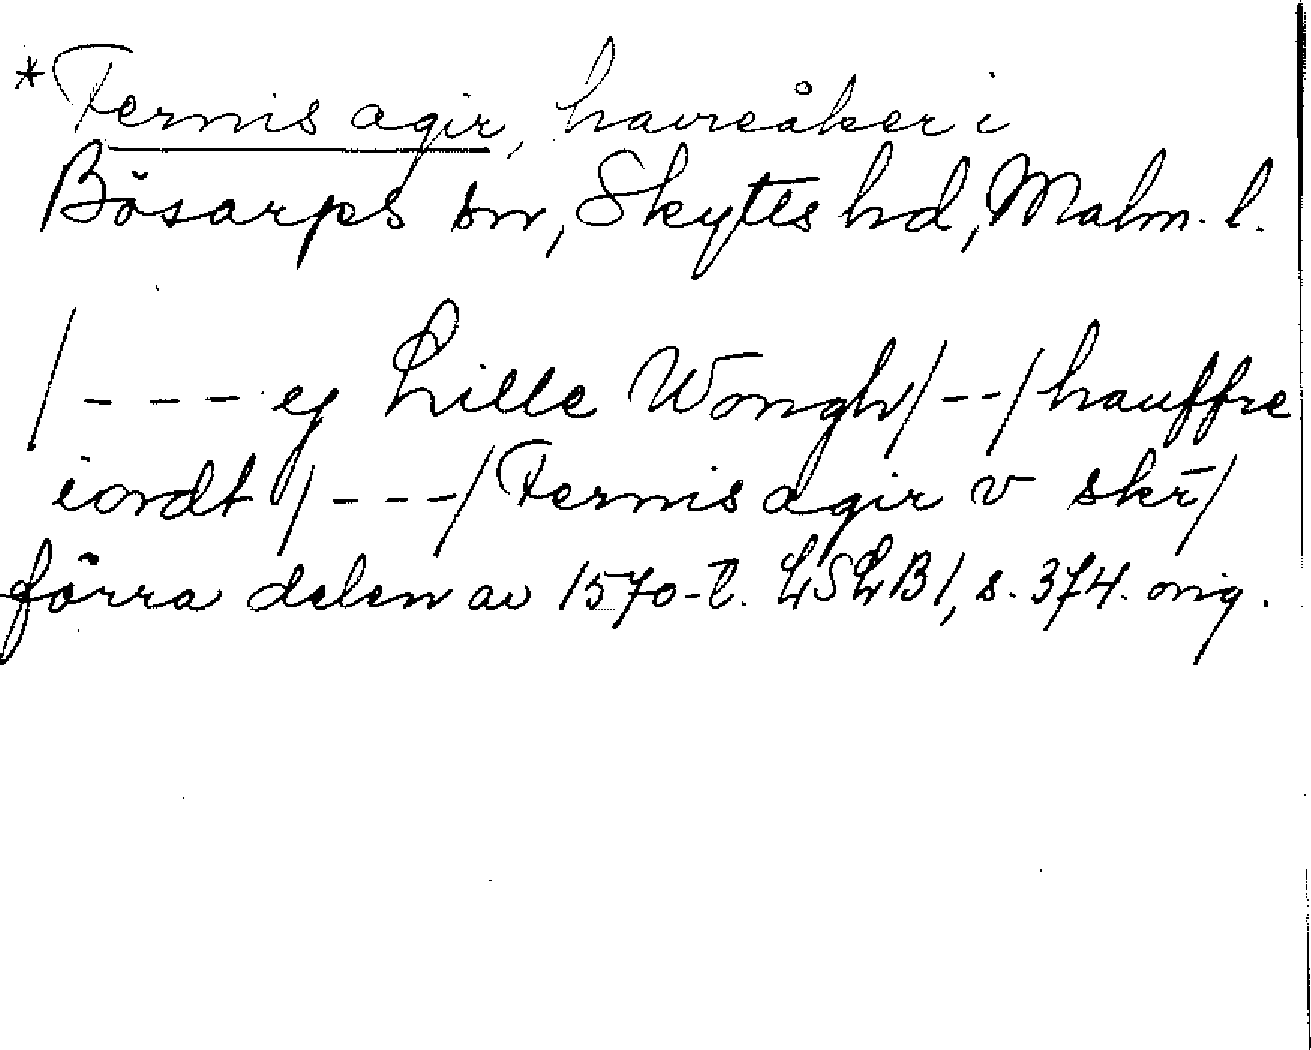 *Fernis agir, havreåker i
Bösarps sn, Skytts hd, Malm. l.
/---ej Lille Wongh/--/hauffre
iordt /---/Fernis agir v skr/
förra delen av 1570-t. LSLB1, s. 374. orig.